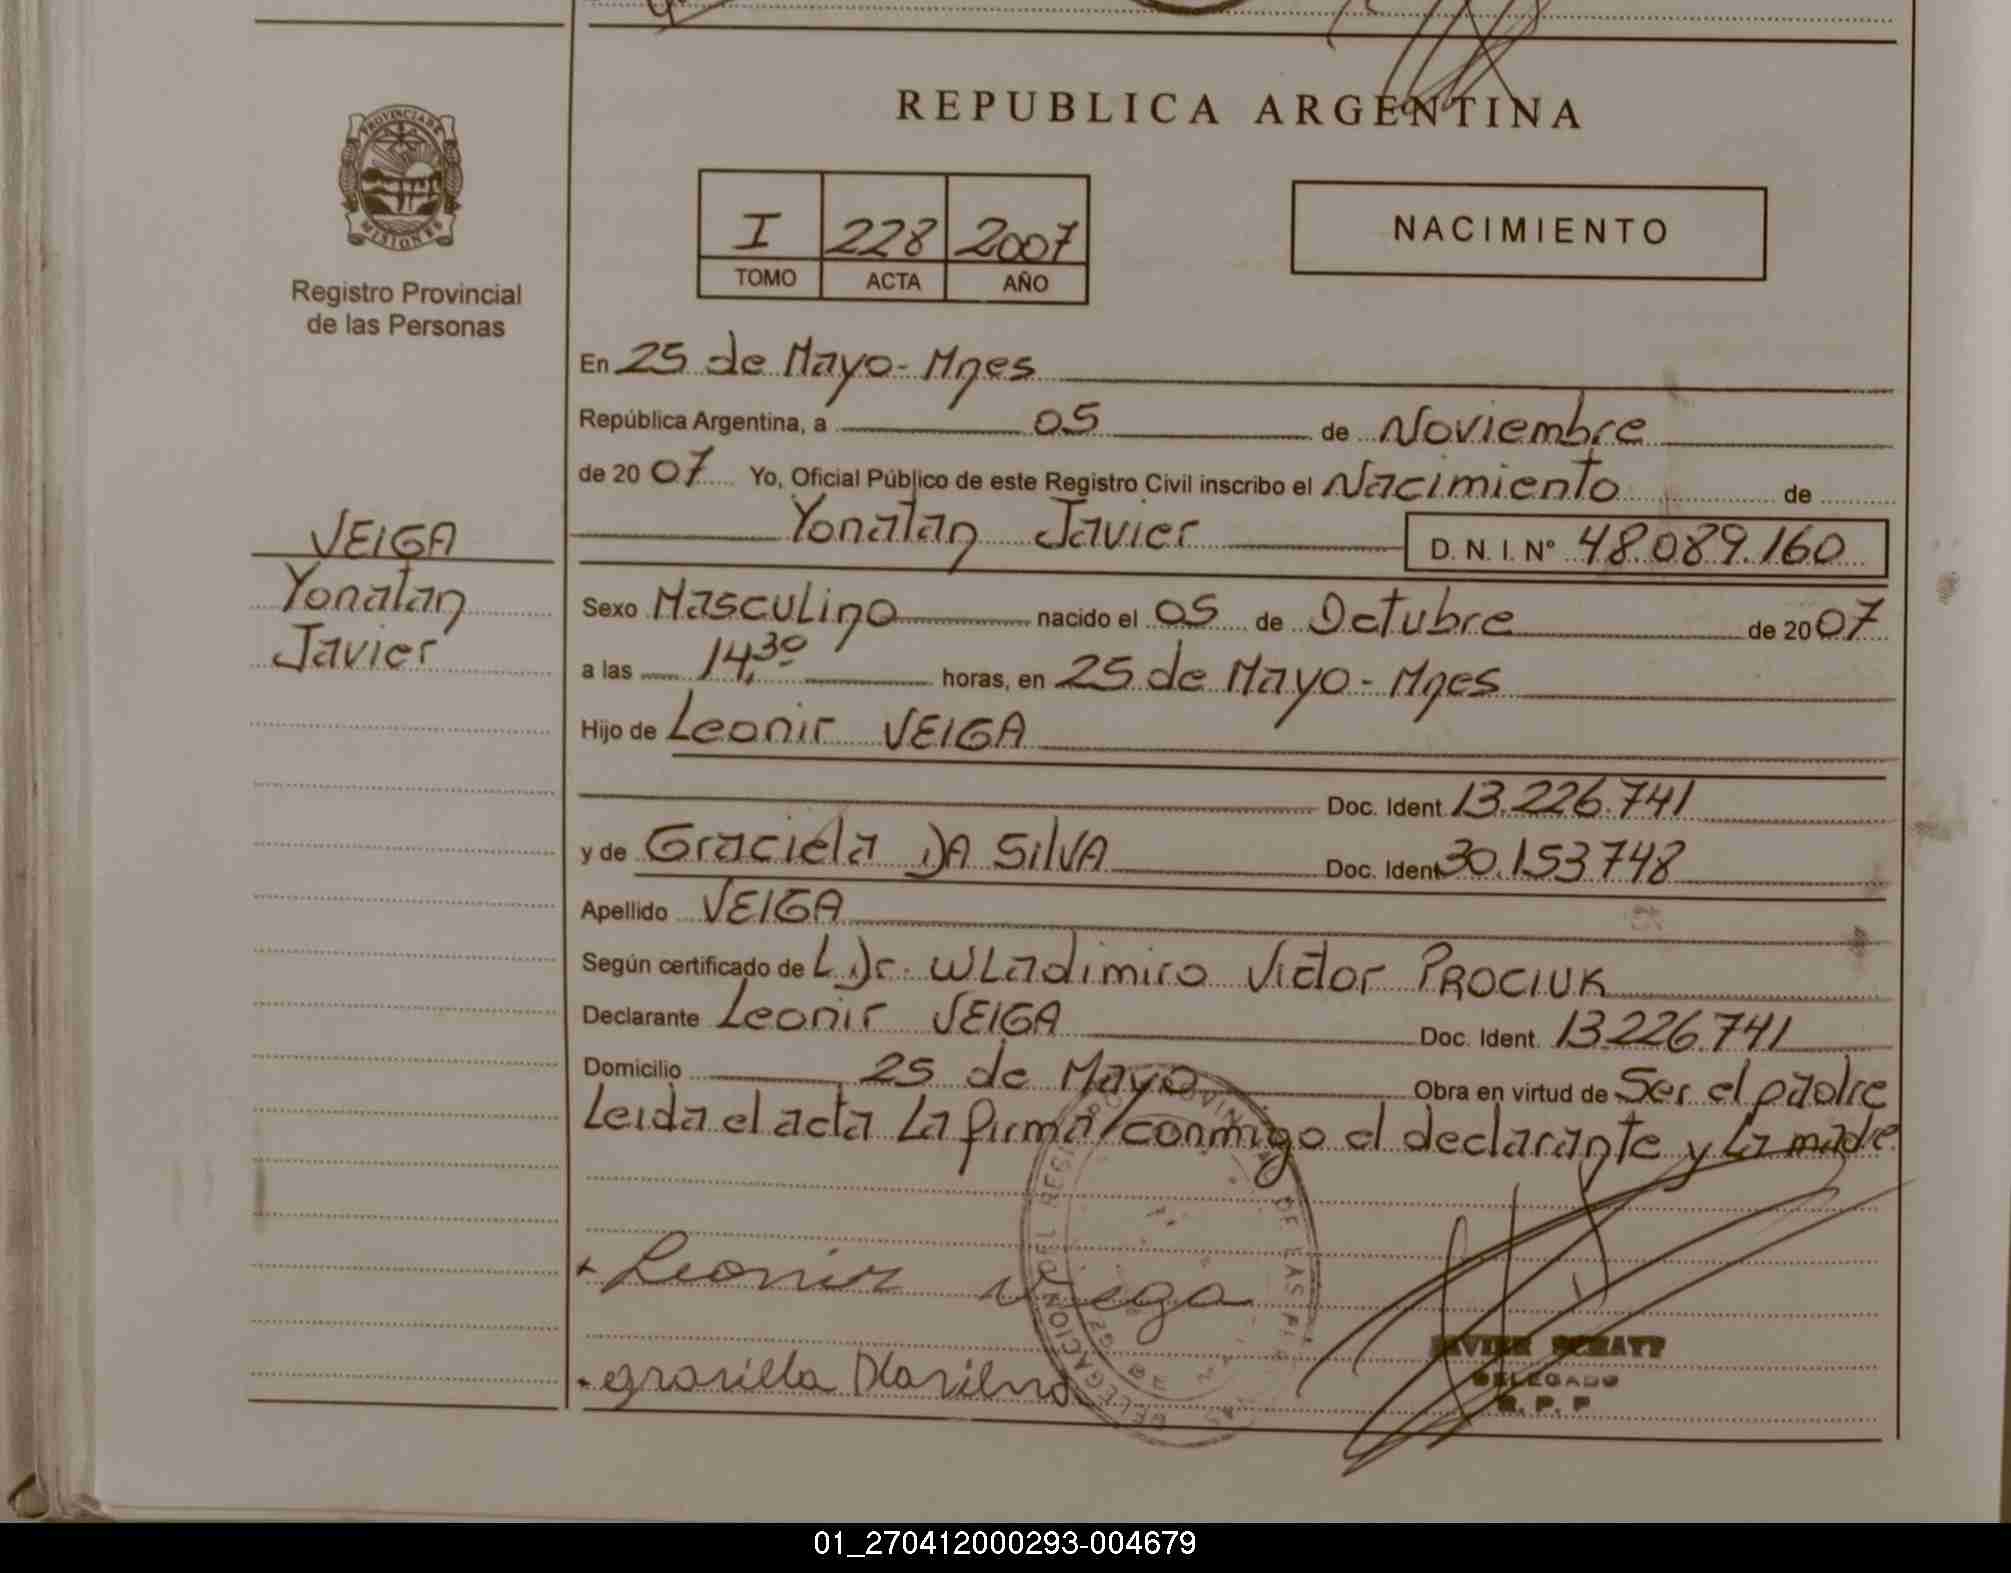 REPUBLICA ARGENTINA
PROVINCIA DE
MISIONES
Registro Provincial
de las Personas
I 228 2007
TOMO ACTA AÑO
NACIMIENTO
En 25 de Mayo - Mnes
República Argentina, a 05 de Noviembre
de 2007 Yo, Oficial Público de este Registro Civil inscribo el Nacimiento de
Yonatan Javier D. N. I. Nº 48.089.160
VEIGA
Yonatan
Javier
Sexo Masculino nacido el 05 de Octubre de 2007
a las 14,30 horas, en 25 de Mayo - Mnes
Hijo de Leonir VEIGA
Doc. Ident 13.226.741
y de Graciela DA SilVA Doc. Ident 30.153748
Apellido VEIGA
Según certificado de L Dr. WLadimiro Victor PROCIUK
Declarante Leonir VEIGA Doc. Ident. 13.226.741
Domicilio 25 de Mayo Obra en virtud de Ser el padre
Leida el acta La firma conmigo el declarante y La madre
DELEGACION DEL REGISTRO PROVINCIAL DE LAS
Leonir
DELEGADO
R. P. P
01_270412000293-004679